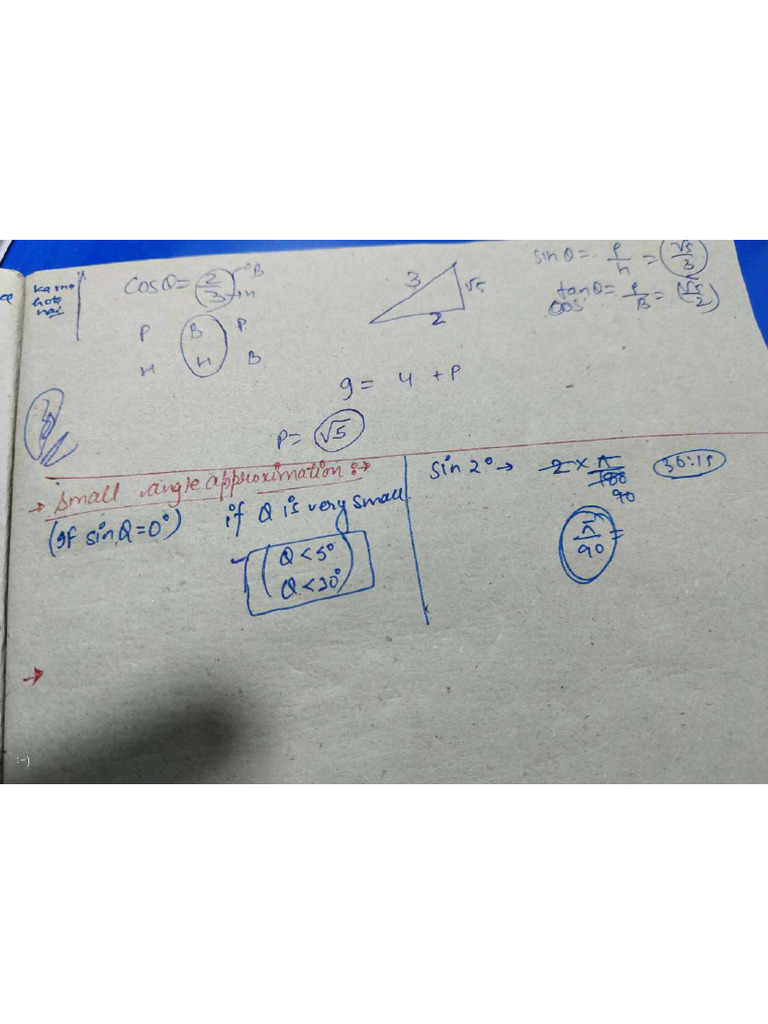 kam
hote
hai
cosθ = 2/3 →B →H
P B P
H H B
3 √5 2
sinθ = P/H = √5/3
tanθ = P/B = (√5/2)
cos
9 = 4 + P
P = √5
→ Small angle approximation :→
(If sin Q = 0°) if Q is very small
(Q < 5°
Q < 10°)
sin 2° → 2 × π/180
90
36:15
π/90 =
→
:-)